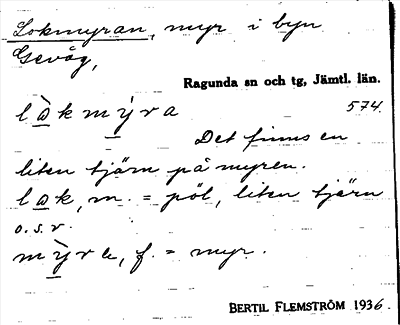 Lokmyran, myr i byn
Gevåg,
Ragunda sn och tg, Jämtl. län.
lòkmýra 574.
Det finns en
liten tjärn på myren.
lok, m. = pöl, liten tjärn
o.s.v.
f. = myr.
BERTIL FLEMSTRÖM 1936.